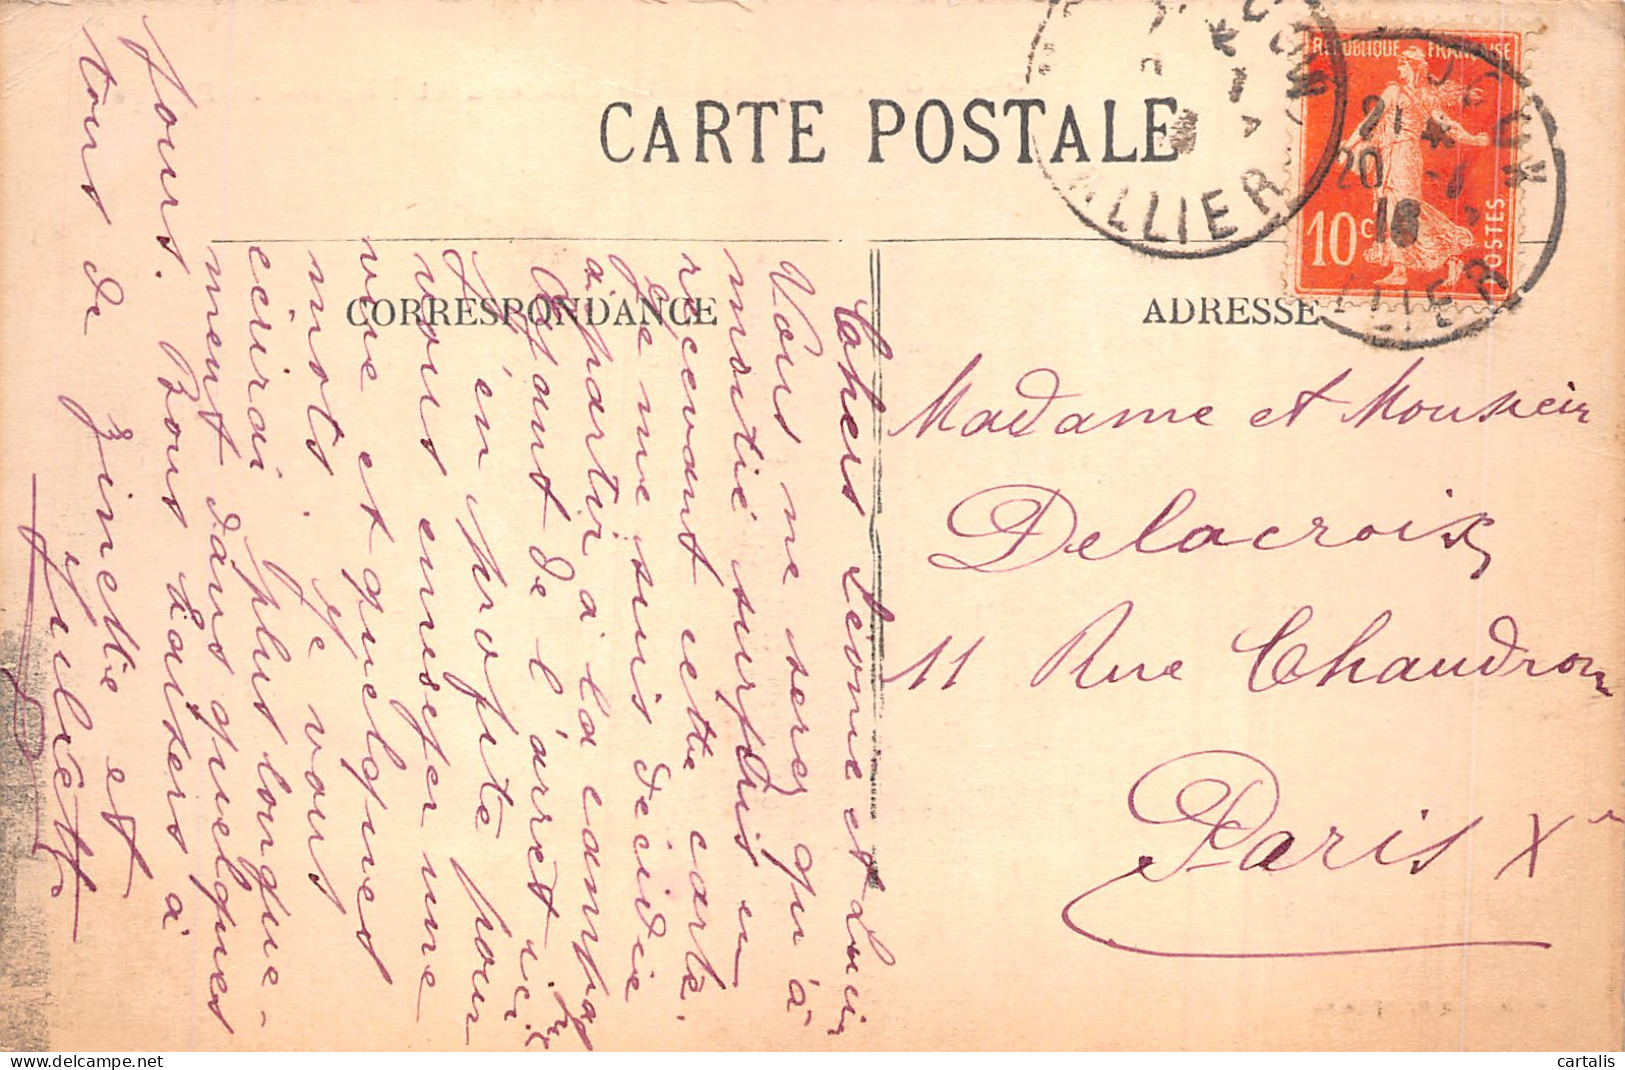 CARTE POSTALE
CORRESPONDANCE
ADRESSE
REPUBLIQUE FRANÇAISE
10c
POSTES
21
20
16
ALLIER
ALLIER
Madame et Monsieur
Delacroix
11 Rue Chaudron
Paris Xe
Cahers Léonie et Lucir
Vous ne serez qu'à
moitié surpris en
recevant cette carte.
Je me suis décidée
à partir à la campagne
Ayant de l'arrêt ici
J'en profite pour
vous envoyer une
vue et quelques
mots. Je vous
écrirai plus longue-
ment dans quelques
jours. Bons baisers à
tous de Ginette et
Juliette
cartalis